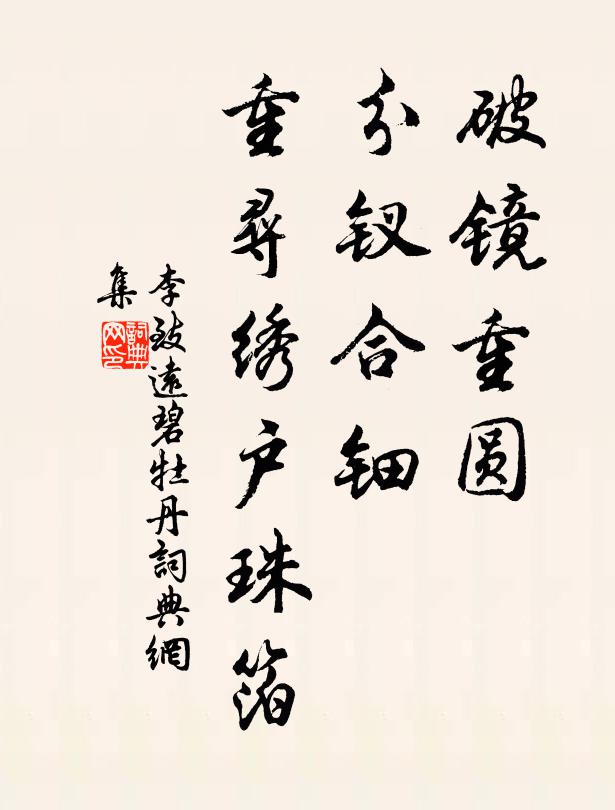 破镜重圆
分钗合钿
重寻绣户珠箔
李致远碧牡丹詞典網
集
詞典网印